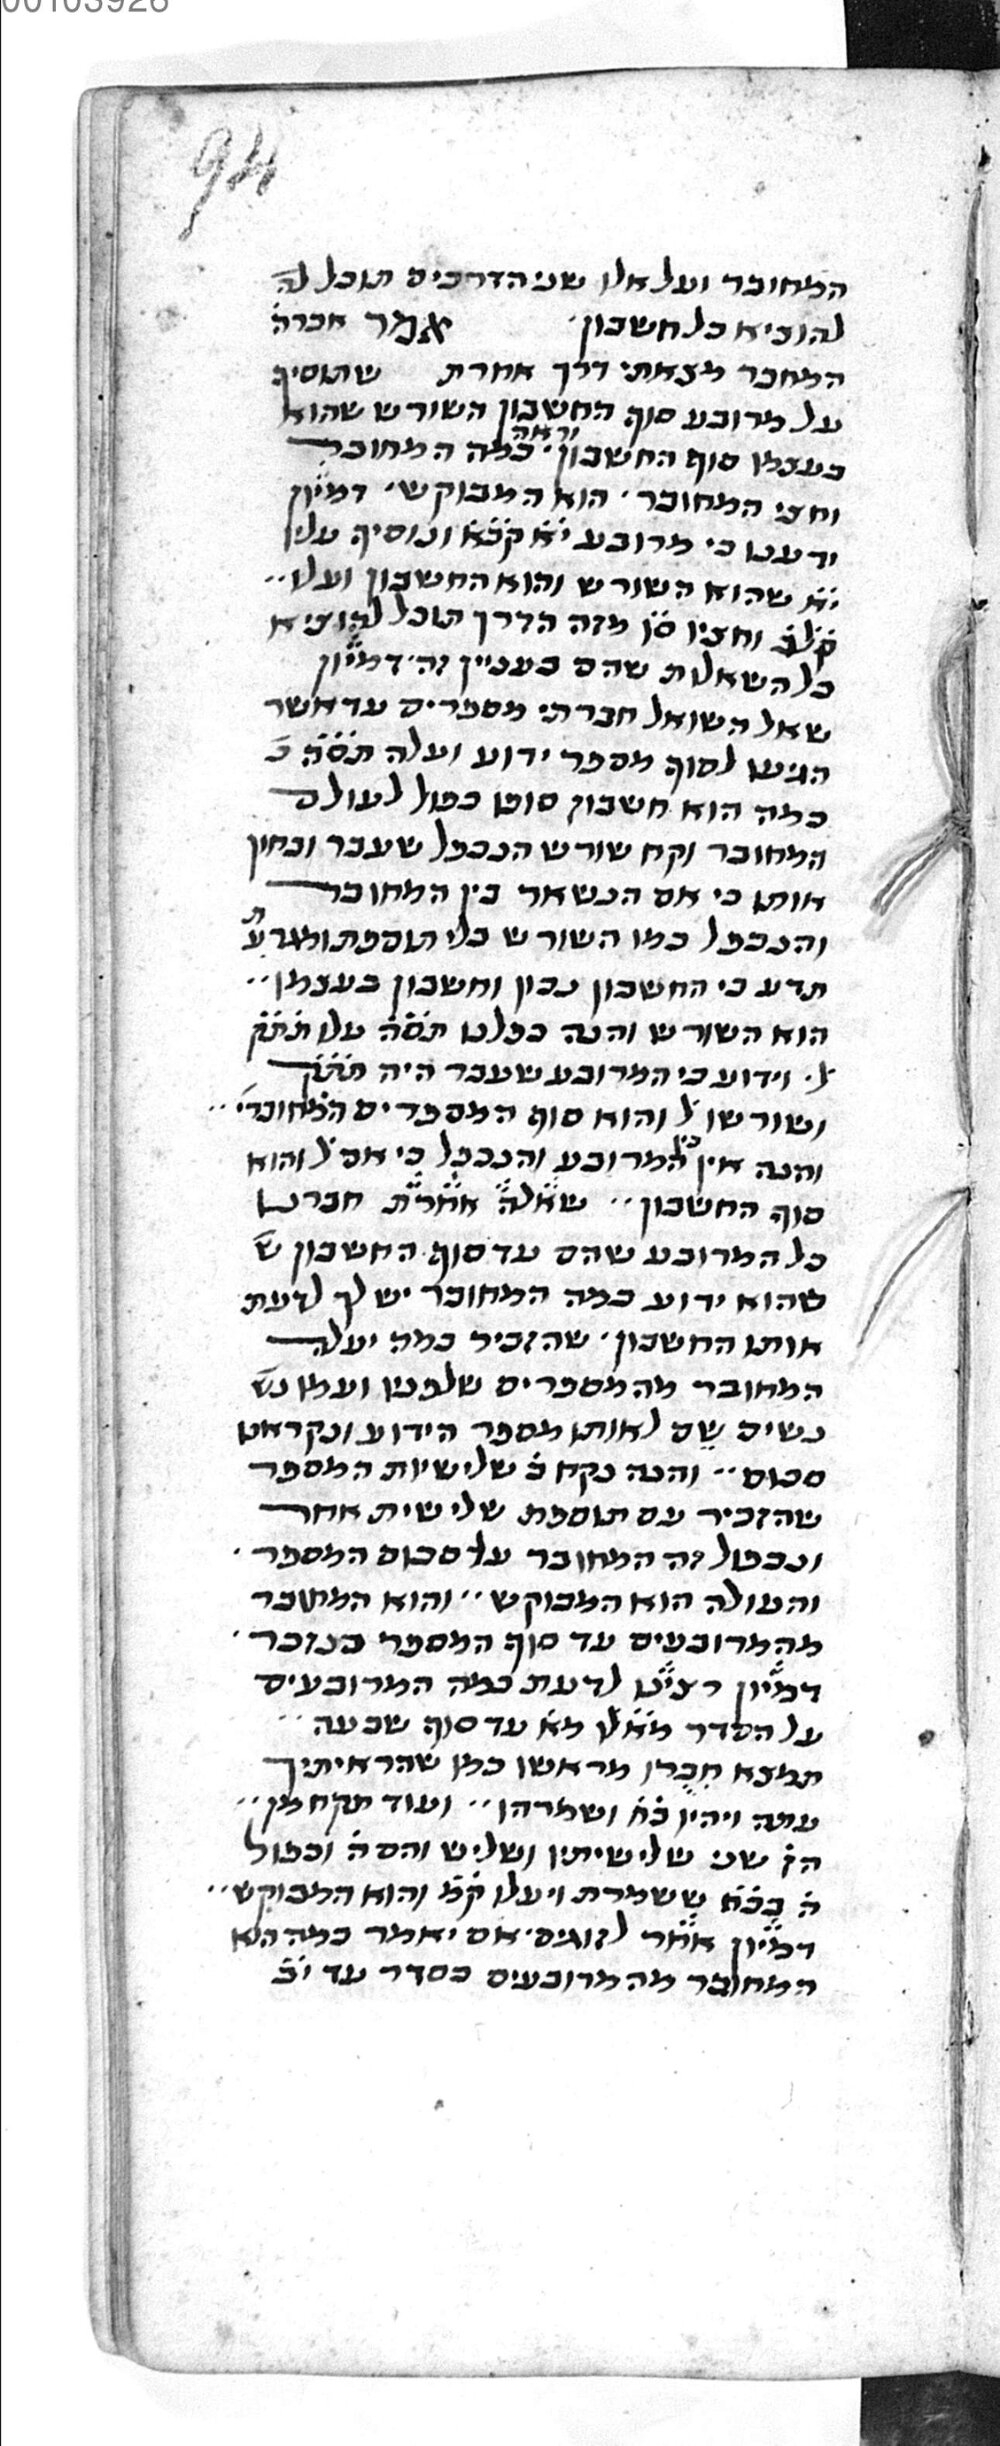 00103926
94
המחובר ועל אלו שני הדרכים תוכל לה
להוציא כל חשבון׳ אמר אברה
המחבר מצאתי דרך אחרת שתוסיף
על מרובע סוף החשבון השורש שהוא
בעצמו סוף החשבון׳ וראה כמה המחובר
וחצי המחובר׳ הוא המבוקש׳ דמיון
ידענו כי מרובע י׳א קכ׳א ונוסיף עליו
י׳א שהוא השורש והוא החשבון ועלו
קל׳ב וחציו ס׳ו מזה הדרך תוכל להוציא
כל השאלות שהם בעניין זה׳ דמיון
שאל השואל חברתי מספרים עד אשר
הגיעו לסוף מספר ידוע ועלה תס׳ה כ
כמה הוא חשבון סופו כפול לעולם
המחובר וקח שורש הנכפל שעבר ובחון
אותו כי אם הנשאר בין המחובר
והנכפל כמו השורש בלי תוספת ומגרעת
תדע כי החשבון נכון וחשבון בעצמו
הוא השורש והנה כפלנו תס׳ה עלו תתק
ל׳ וידוע כי המרובע שעבר היה תתק
ושורשו ל׳ והוא סוף המספרים המחוברי׳
והנה אין בין המרובע והנכפל כי אם ל׳ והוא
סוף החשבון׳׳ שאלה אחרת חברנו
כל המרובע שהם עד סוף החשבון ש
שהוא ידוע כמה המחובר יש לך לדעת
אותו החשבון׳ שהזכיר כמה יעלה
המחובר מהמספרים שלפניו ועמו נש
נשים שם לאותו מספר הידוע ונקראנו
סכום׳׳ והנה נקח ב׳ שלישיות המספר
שהזכיר עם תוספת שלישית אחר
ונכפול זה המחובר על סכום המספר׳
והעולה הוא המבוקש׳׳ והוא המחובר
מהמרובעים עד סוף המספר הנזכר׳
דמיון רצינו לדעת כמה המרובעים
על הסדר מאלו מא׳ עד סוף שבעה
תמצא חברו מראשו כמו שהראיתיך
עתה ויהיו כ׳א ושמרהו׳׳ ועוד תקח מן
הז׳ שני שלישיתיו ושליש והם ה׳ וכפול
ה׳ בכ׳א ששמרת ויעלו ק׳מ והוא המבוקש
דמיון אחר לזוגים׳ אם יאמר כמה הוא
המחובר מהמרובעים כסדר עד י׳ב